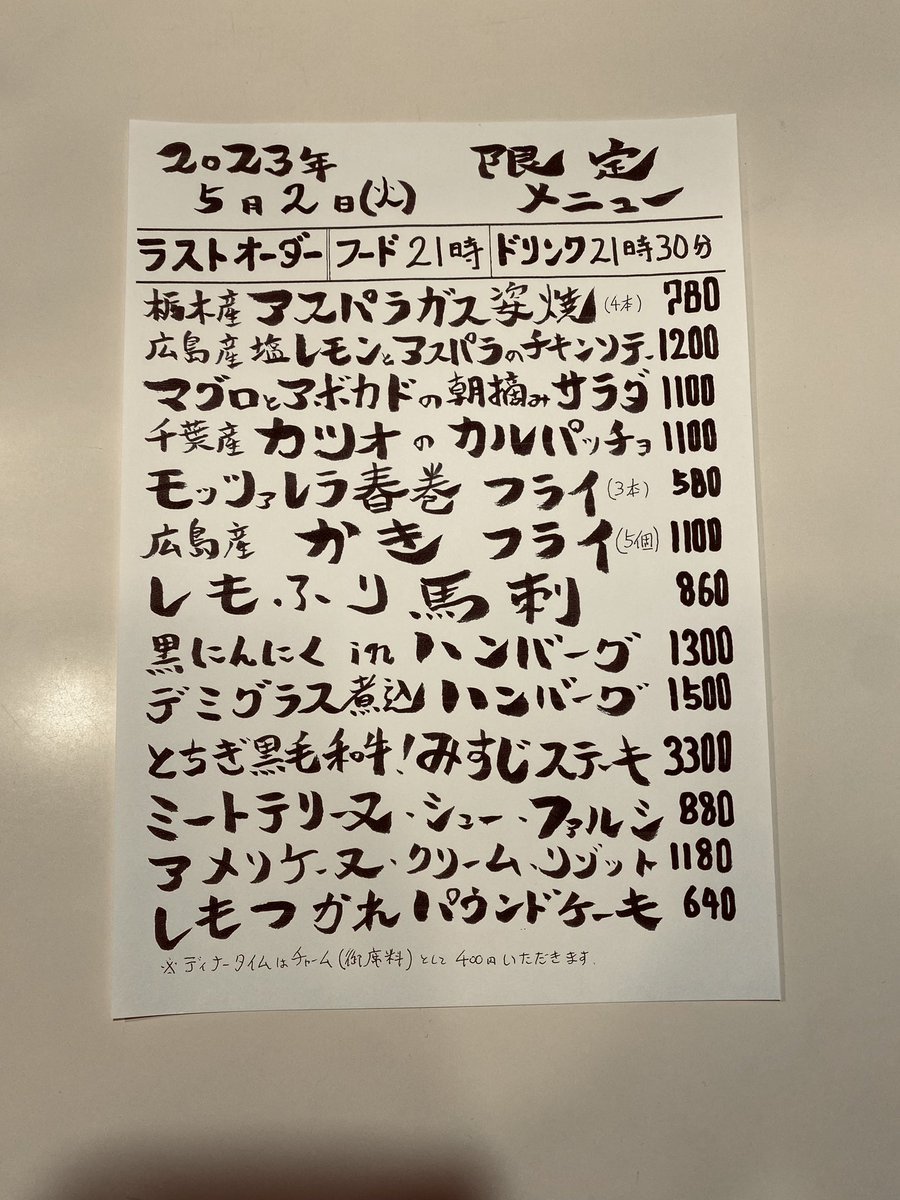 2023年 限定
5月2日(火) メニュー
ラストオーダー フード21時 ドリンク21時30分
栃木産 アスパラガス姿焼(4本) 780
広島産 塩レモンとアスパラのチキンソテー 1200
マグロとアボカドの朝摘みサラダ 1100
千葉産 カツオのカルパッチョ 1100
モッツァレラ春巻フライ(3本) 580
広島産 かきフライ(5個) 1100
しもふり馬刺 860
黒にんにくinハンバーグ 1300
デミグラス煮込ハンバーグ 1500
とちぎ黒毛和牛!みすじステーキ 3300
ミートテリーヌ・シュー・ファルシ 880
アメリケーヌ・クリーム・リゾット 1180
しもつかれパウンドケーキ 640
※ディナータイムはチャーム(御席料)として400円いただきます.